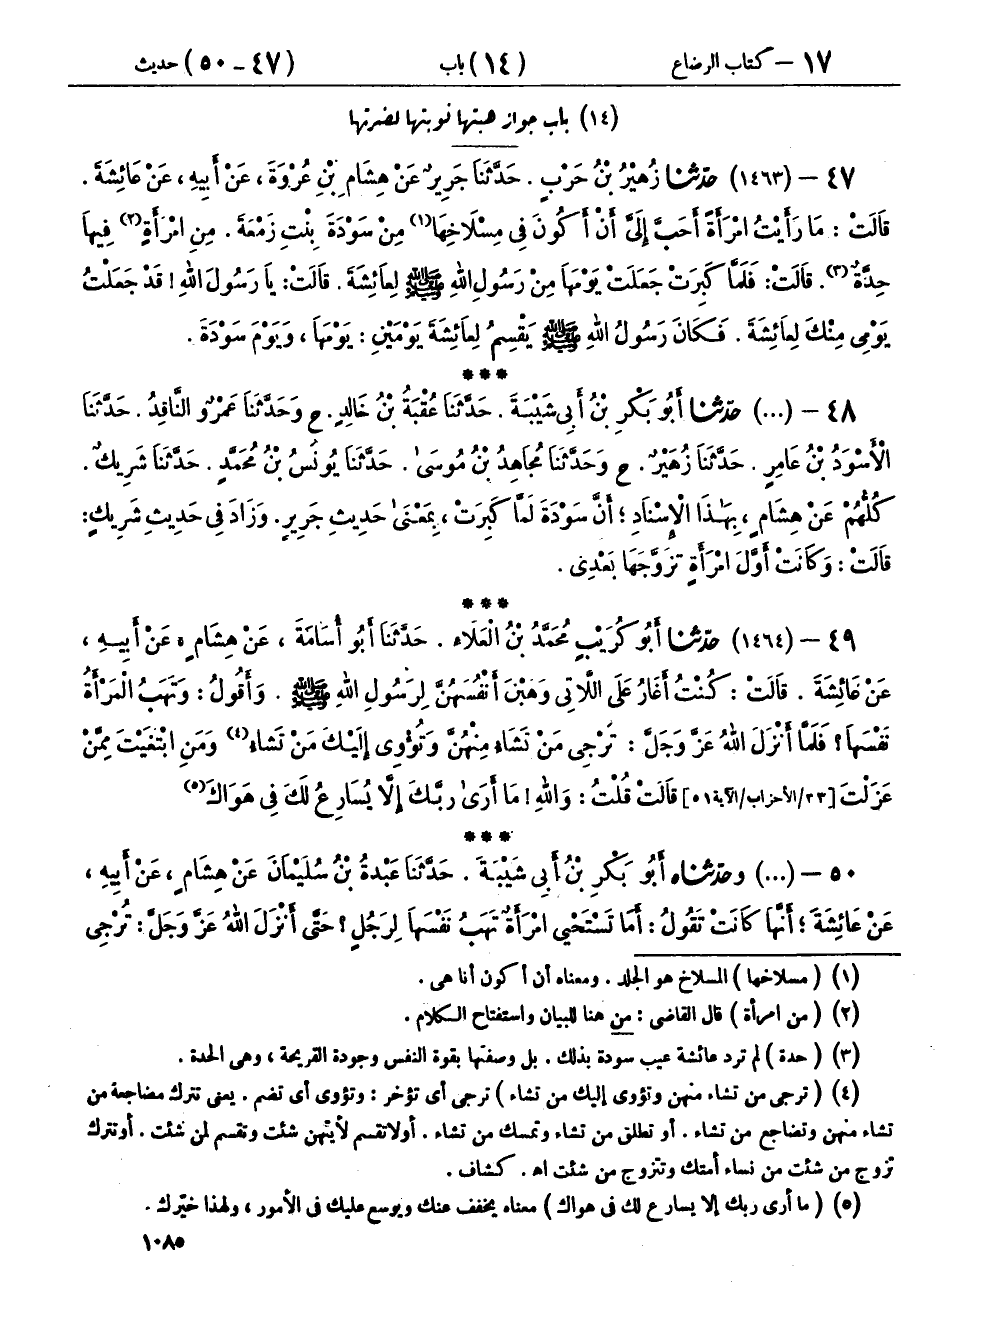 ١٧ – كتاب الرضاع (١٤) باب (٤٧ – ٥٠) حديث
(١٤) باب جواز هبتها نوبتها لضرتها
٤٧ – (١٤٦٣) حدّثنا زُهَيْرُ بْنُ حَرْبٍ . حَدَّثَنَا جَرِيرٌ عَنْ هِشَامِ بْنِ عُرْوَةَ ، عَنْ أَبِيهِ ، عَنْ عَائِشَةَ .
قَالَتْ : مَا رَأَيْتُ امْرَأَةً أَحَبَّ إِلَىَّ أَنْ أَكُونَ فِى مِسْلَاخِهَا(١) مِنْ سَوْدَةَ بِنْتِ زَمْعَةَ . مِنِ امْرَأَةٍ(٢) فِيهَا
حِدَّةٌ(٣). قَالَتْ: فَلَمَّا كَبِرَتْ جَعَلَتْ يَوْمَهَا مِنْ رَسُولِ اللهِ ﷺ لِعَائِشَةَ . قَالَتْ: يَا رَسُولَ اللهِ ! قَدْ جَعَلْتُ
يَوْمِى مِنْكَ لِعَائِشَةَ . فَكَانَ رَسُولُ اللهِ ﷺ يَقْسِمُ لِعَائِشَةَ يَوْمَيْنِ : يَوْمَهَا ، وَيَوْمَ سَوْدَةَ .
***
٤٨ – (...) حدّثنا أَبُو بَكْرِ بْنُ أَبِى شَيْبَةَ . حَدَّثَنَا عُقْبَةُ بْنُ خَالِدٍ . ح وَحَدَّثَنَا عَمْرٌو النَّاقِدُ . حَدَّثَنَا
الْأَسْوَدُ بْنُ عَامِرٍ . حَدَّثَنَا زُهَيْرٌ . ح وَحَدَّثَنَا مُجَاهِدُ بْنُ مُوسَىٰ . حَدَّثَنَا يُونُسُ بْنُ مُحَمَّدٍ . حَدَّثَنَا شَرِيكٌ .
كُلُّهُمْ عَنْ هِشَامٍ ، بِهَٰذَا الْإِسْنَادِ ؛ أَنَّ سَوْدَةَ لَمَّا كَبِرَتْ ، بِمَعْنَىٰ حَدِيثِ جَرِيرٍ. وَزَادَ فِى حَدِيثِ شَرِيكٍ:
قَالَتْ : وَكَانَتْ أَوَّلَ امْرَأَةٍ تَزَوَّجَهَا بَعْدِى .
***
٤٩ – (١٤٦٤) حدّثنا أَبُو كُرَيْبٍ مُحَمَّدُ بْنُ الْعَلَاءِ . حَدَّثَنَا أَبُو أُسَامَةَ ، عَنْ هِشَامٍ ، عَنْ أَبِيهِ ،
عَنْ عَائِشَةَ . قَالَتْ : كُنْتُ أَغَارُ عَلَى اللَّاتِى وَهَبْنَ أَنْفُسَهُنَّ لِرَسُولِ اللهِ ﷺ . وَأَقُولُ : وَتَهَبُ الْمَرْأَةُ
نَفْسَهَا ؟ فَلَمَّا أَنْزَلَ اللهُ عَزَّ وَجَلَّ : تُرْجِى مَنْ تَشَاءُ مِنْهُنَّ وَتُؤْوِى إِلَيْكَ مَنْ تَشَاءُ(٤) وَمَنِ ابْتَغَيْتَ مِمَّنْ
عَزَلْتَ [٣٣/الأحزاب/الآية ٥١] قَالَتْ قُلْتُ : وَاللهِ ! مَا أَرَىٰ رَبَّكَ إِلَّا يُسَارِعُ لَكَ فِى هَوَاكَ(٥)
***
٥٠ – (...) وحدّثناه أَبُو بَكْرِ بْنُ أَبِى شَيْبَةَ . حَدَّثَنَا عَبْدَةُ بْنُ سُلَيْمَانَ عَنْ هِشَامٍ ، عَنْ أَبِيهِ ،
عَنْ عَائِشَةَ ؛ أَنَّهَا كَانَتْ تَقُولُ : أَمَا تَسْتَحْيِى امْرَأَةٌ تَهَبُ نَفْسَهَا لِرَجُلٍ ؟ حَتَّى أَنْزَلَ اللهُ عَزَّ وَجَلَّ : تُرْجِى
(١) ( مسلاخها ) المسلاخ هو الجلد . ومعناه أن أكون أنا هى .
(٢) ( من امرأة ) قال القاضى : من هنا للبيان واستفتاح الكلام .
(٣) ( حدة ) لم ترد عائشة عيب سودة بذلك . بل وصفتها بقوة النفس وجودة القريحة ، وهى الحدة .
(٤) ( ترجى من تشاء منهن وتؤوى إليك من تشاء ) ترجى أى تؤخر : وتؤوى أى تضم . يعنى تترك مضاجعة من
تشاء منهن وتضاجع من تشاء . أو تطلق من تشاء وتمسك من تشاء . أولا تقسم لأيتهن شئت وتقسم لمن شئت . أو تترك
تزوج من شئت من نساء أمتك وتتزوج من شئت اه . كشاف .
(٥) ( ما أرى ربك إلا يسارع لك فى هواك ) معناه يخفف عنك ويوسع عليك فى الأمور ، ولهذا خيّرك .
١٠٨٥